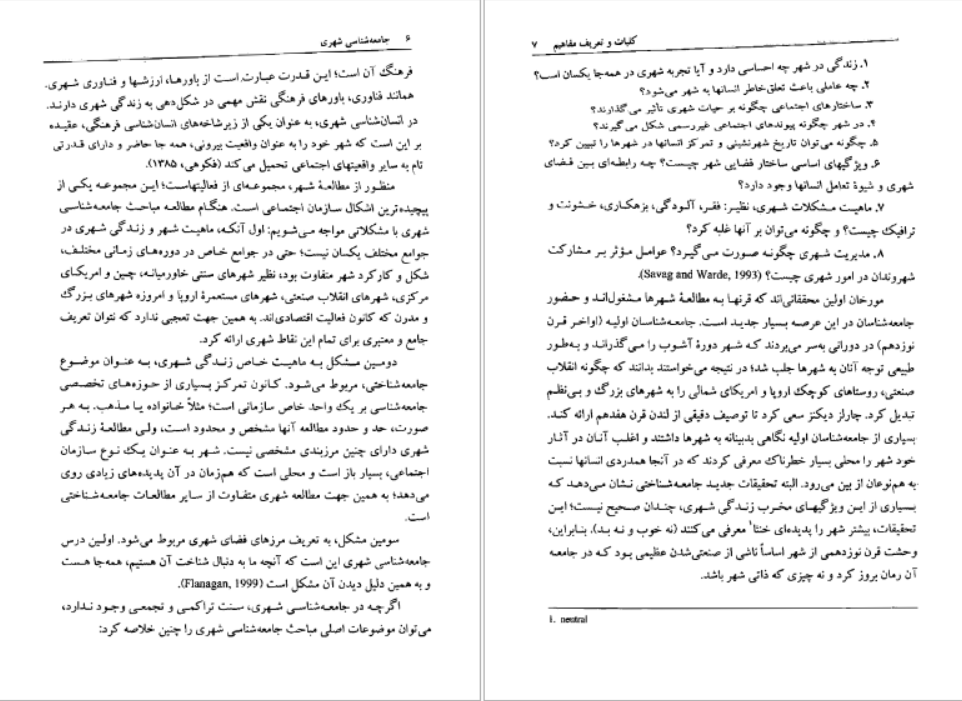 ۶ جامعه‌شناسی شهری
فرهنگ آن است؛ این قدرت عبارت است از باورها، ارزشها و فناوری شهری.
همانند فناوری، باورهای فرهنگی نقش مهمی در شکل‌دهی به زندگی شهری دارند.
در انسان‌شناسی شهری، به عنوان یکی از زیرشاخه‌های انسان‌شناسی فرهنگی، عقیده
بر این است که شهر خود را به عنوان واقعیت بیرونی، همه جا حاضر و دارای قدرتی
تام به سایر واقعیتهای اجتماعی تحمیل می‌کند (فکوهی، ۱۳۸۵).
منظور از مطالعهٔ شهر، مجموعه‌ای از فعالیتهاست؛ این مجموعه یکی از
پیچیده‌ترین اشکال سازمان اجتماعی است. هنگام مطالعه مباحث جامعه‌شناسی
شهری با مشکلاتی مواجه می‌شویم: اول آنکه، ماهیت شهر و زندگی شهری در
جوامع مختلف یکسان نیست؛ حتی در جوامع خاص در دوره‌های زمانی مختلف،
شکل و کارکرد شهر متفاوت بود، نظیر شهرهای سنتی خاورمیانه، چین و امریکای
مرکزی، شهرهای انقلاب صنعتی، شهرهای مستعمرهٔ اروپا و امروزه شهرهای بزرگ
و مدرن که کانون فعالیت اقتصادی‌اند. به همین جهت تعجبی ندارد که نتوان تعریف
جامع و معتبری برای تمام این نقاط شهری ارائه کرد.
دومین مشکل به ماهیت خاص زندگی شهری، به عنوان موضوع
جامعه‌شناختی، مربوط می‌شود. کانون تمرکز بسیاری از حوزه‌های تخصصی
جامعه‌شناسی بر یک واحد خاص سازمانی است؛ مثلاً خانواده یا مذهب. به هر
صورت، حد و حدود مطالعه آنها مشخص و محدود است، ولی مطالعهٔ زندگی
شهری دارای چنین مرزبندی مشخصی نیست. شهر به عنوان یک نوع سازمان
اجتماعی، بسیار باز است و محلی است که همزمان در آن پدیده‌های زیادی روی
می‌دهد؛ به همین جهت مطالعه شهری متفاوت از سایر مطالعات جامعه‌شناختی
است.
سومین مشکل، به تعریف مرزهای فضای شهری مربوط می‌شود. اولین درس
جامعه‌شناسی شهری این است که آنچه ما به دنبال شناخت آن هستیم، همه‌جا هست
و به همین دلیل دیدن آن مشکل است (Flanagan, 1999).
اگرچه در جامعه‌شناسی شهری، سنت تراکمی و تجمعی وجود ندارد،
می‌توان موضوعات اصلی مباحث جامعه‌شناسی شهری را چنین خلاصه کرد:
کلیات و تعریف مفاهیم ۷
۱. زندگی در شهر چه احساسی دارد و آیا تجربه شهری در همه‌جا یکسان است؟
۲. چه عاملی باعث تعلق‌خاطر انسانها به شهر می‌شود؟
۳. ساختارهای اجتماعی چگونه بر حیات شهری تأثیر می‌گذارند؟
۴. در شهر چگونه پیوندهای اجتماعی غیررسمی شکل می‌گیرند؟
۵. چگونه می‌توان تاریخ شهرنشینی و تمرکز انسانها در شهرها را تبیین کرد؟
۶. ویژگیهای اساسی ساختار فضایی شهر چیست؟ چه رابطه‌ای بین فضای
شهری و شیوهٔ تعامل انسانها وجود دارد؟
۷. ماهیت مشکلات شهری، نظیر: فقر، آلودگی، بزهکاری، خشونت و
ترافیک چیست؟ و چگونه می‌توان بر آنها غلبه کرد؟
۸. مدیریت شهری چگونه صورت می‌گیرد؟ عوامل مؤثر بر مشارکت
شهروندان در امور شهری چیست؟ (Savag and Warde, 1993).
مورخان اولین محققانی‌اند که قرنها به مطالعهٔ شهرها مشغول‌اند و حضور
جامعه‌شناسان در این عرصه بسیار جدید است. جامعه‌شناسان اولیه (اواخر قرن
نوزدهم) در دورانی به‌سر می‌بردند که شهر دورهٔ آشوب را می‌گذراند و به‌طور
طبیعی توجه آنان به شهرها جلب شد؛ در نتیجه می‌خواستند بدانند که چگونه انقلاب
صنعتی، روستاهای کوچک اروپا و امریکای شمالی را به شهرهای بزرگ و بی‌نظم
تبدیل کرد. چارلز دیکنز سعی کرد تا توصیف دقیقی از لندن قرن هفدهم ارائه کند.
بسیاری از جامعه‌شناسان اولیه نگاهی بدبینانه به شهرها داشتند و اغلب آنان در آثار
خود شهر را محلی بسیار خطرناک معرفی کردند که در آنجا همدردی انسانها نسبت
به هم‌نوعان از بین می‌رود. البته تحقیقات جدید جامعه‌شناختی نشان می‌دهد که
بسیاری از این ویژگیهای مخرب زندگی شهری، چندان صحیح نیست؛ این
تحقیقات، بیشتر شهر را پدیده‌ای خنثا۱ معرفی می‌کنند (نه خوب و نه بد). بنابراین،
وحشت قرن نوزدهمی از شهر اساساً ناشی از صنعتی‌شدن عظیمی بود که در جامعه
آن زمان بروز کرد و نه چیزی که ذاتی شهر باشد.
1. neutral